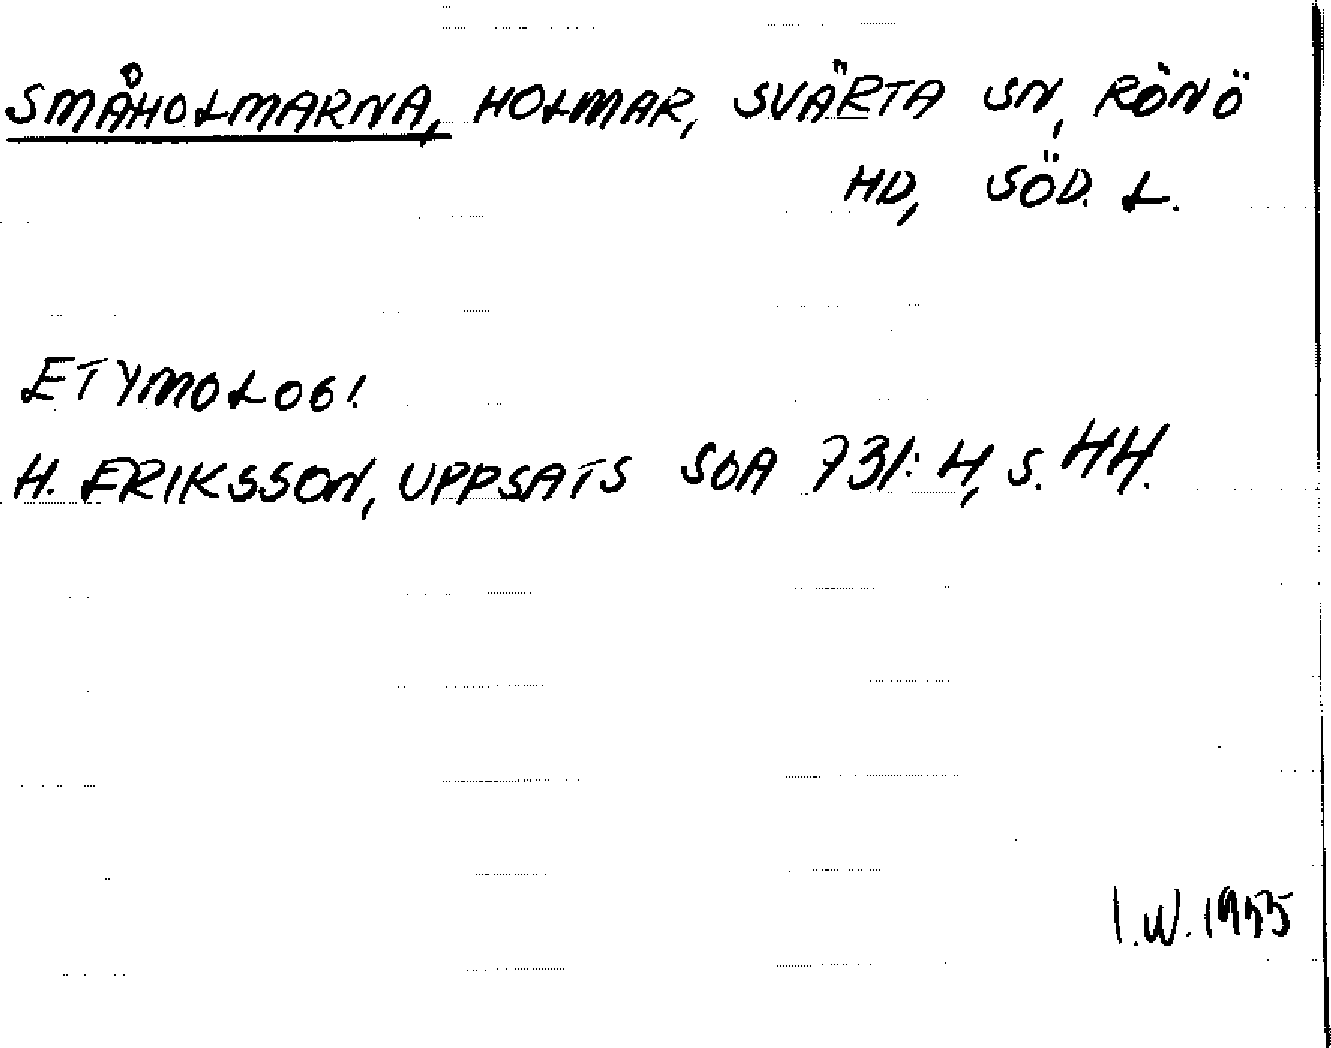 SMÅHOLMARNA, HOLMAR, SVÄRTA SN, RÖNÖ
HD, SÖD. L.
ETYMOLOGI.
H. ERIKSSON, UPPSATS SOA 731:4, S. 44.
I.W. 1955